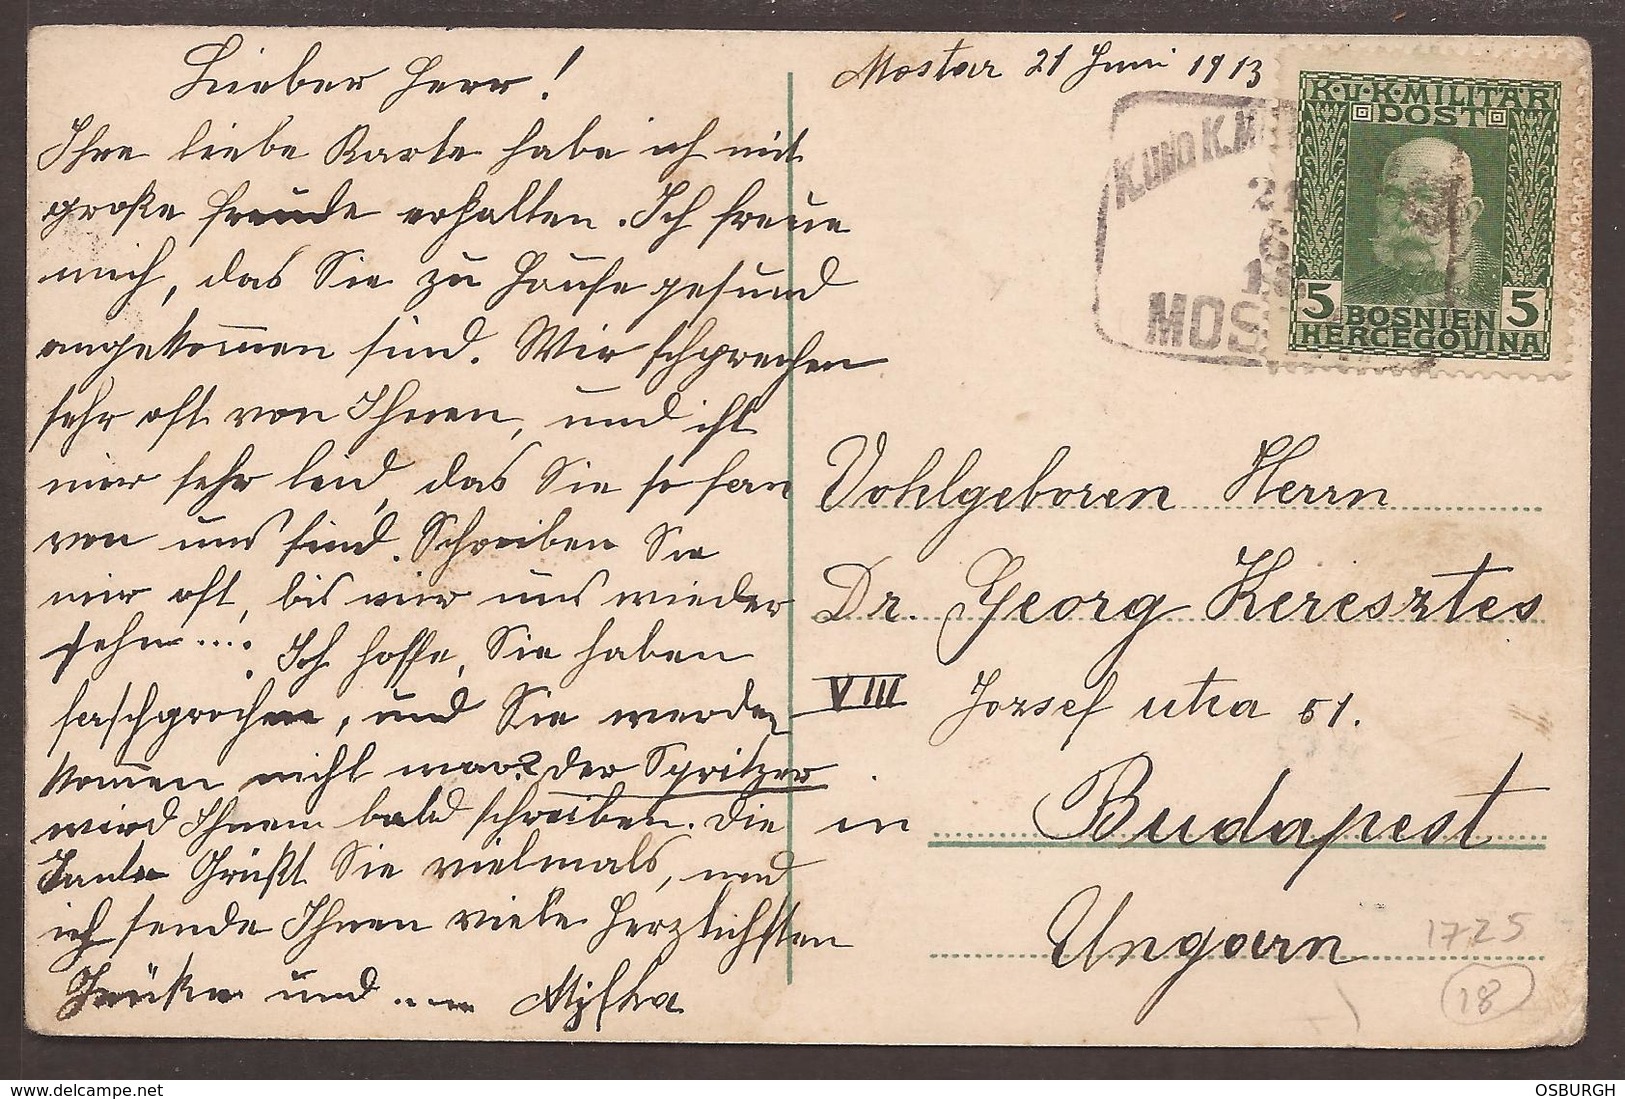 Lieber Herr!
Ihre liebe Karte habe ich mit
große freude erhalten. Ich freue
mich, das Sie zu Hause gesund
angekommen sind. Wir schprechen
sehr oft von Ihnen, und ist
mir sehr leid, das Sie so fern
von uns sind. Schreiben Sie
mir oft, bis wir uns wieder
sehn....
Ich hoffe, Sie haben
ferschprochen, und Sie werden
kommen nicht war? der Spritzer
wird Ihnen bald schreiben. Die
Tante Grüßt Sie vielmals, und
ich sende Ihnen viele herzlichsten
Grüße und .... Mifka
Mostar 21 Juni 1913
K.UND K.M
21
MOS
K.U.K.MILITÄR
POST
5 5
BOSNIEN
HERCEGOVINA
Vohlgeboren Herrn
Dr. Georg Keresztes
VIII Jozsef utca 51.
in Budapest
Ungarn
1725
18
delcampe.net
OSBURGH